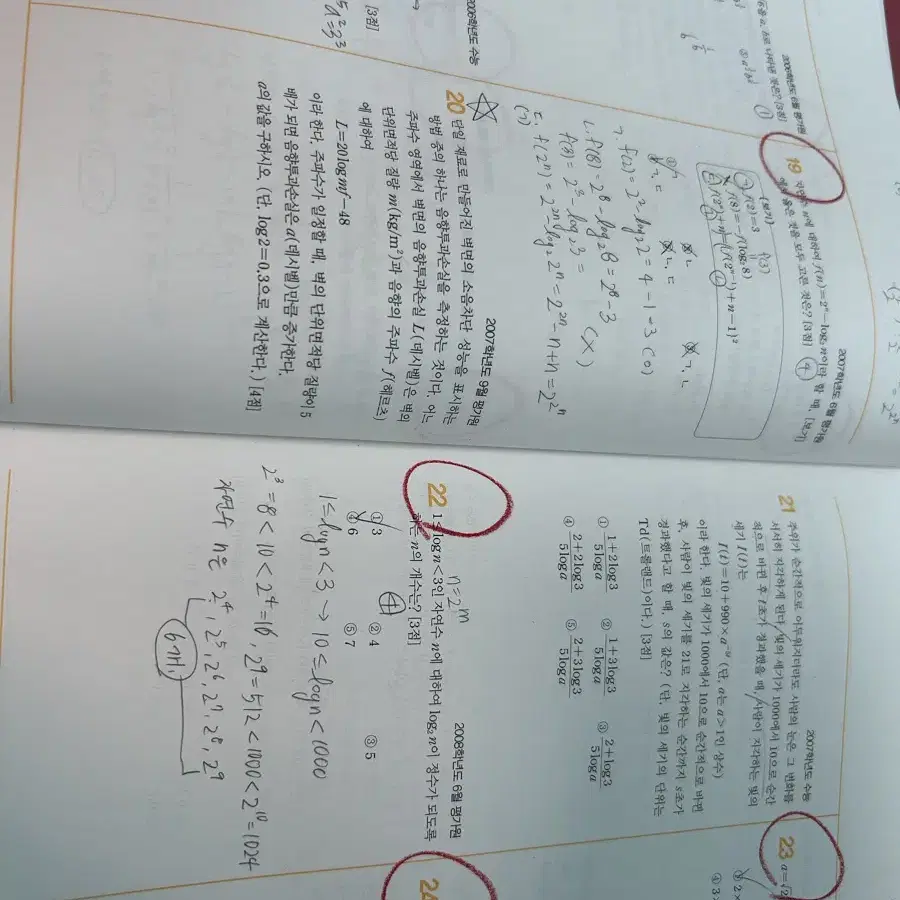 2006학년도 수능
[3점]
2006학년도 6월 평가원
①
2007학년도 6월 평가원
19 자연수 n에 대하여 f(n)=2ⁿ-log₂n이라 할 때, [보기]
에서 옳은 것을 모두 고른 것은? [3점] ④
[보기]
ㄱ. f(2)=3
ㄴ. f(8)=-f(log₂8)
f(3)
ㄱ, ㄷ
ㄴ, ㄷ
ㄱ. f(2)=2²-log₂2=4-1=3 (O)
ㄴ. f(8)=2⁸-log₂8=2⁸-3
f(3)=2³-log₂3= (X)
2007학년도 9월 평가원
20 단일 재료로 만들어진 벽면의 소음차단 성능을 표시하는
방법 중의 하나는 음향투과손실을 측정하는 것이다. 어느
주파수 영역에서 벽면의 음향투과손실 L(데시벨)은 벽의
단위면적당 질량 m(kg/m²)과 음향의 주파수 f(헤르츠)
에 대하여
L=20log mf-48
이라 한다. 주파수가 일정할 때, 벽의 단위면적당 질량이 5
배가 되면 음향투과손실은 a(데시벨)만큼 증가한다.
a의 값을 구하시오. (단, log2=0.3으로 계산한다.) [4점]
2007학년도 수능
21 주위가 순간적으로 어두워지더라도 사람의 눈은 그 변화를
서서히 지각하게 된다. 빛의 세기가 1000에서 10으로 순간
적으로 바뀐 후 t초가 경과했을 때, 사람이 지각하는 빛의
세기 I(t)는
I(t)=10+990×a⁻⁵ᵗ (단, a는 a>1인 상수)
이라 한다. 빛의 세기가 1000에서 10으로 순간적으로 바뀐
후, 사람이 빛의 세기를 21로 지각하는 순간까지 s초가
경과했다고 할 때, s의 값은? (단, 빛의 세기의 단위는
Td(트롤랜드)이다.) [3점]
① 1+2log3 / 5loga ② 1+3log3 / 5loga ③ 2+log3 / 5loga
④ 2+2log3 / 5loga ⑤ 2+3log3 / 5loga
2008학년도 6월 평가원
22 1≤log n<3인 자연수 n에 대하여 log₂n이 정수가 되도록
하는 n의 개수는? [3점]
n=2ᵐ
④
① 3 ② 4 ③ 5
④ 6 ⑤ 7
1≤log n<3 → 10≤log n<1000
2³=8<10<2⁴=16, 2⁹=512<1000<2¹⁰=1024
자연수 n은 2⁴, 2⁵, 2⁶, 2⁷, 2⁸, 2⁹
6개
23
24